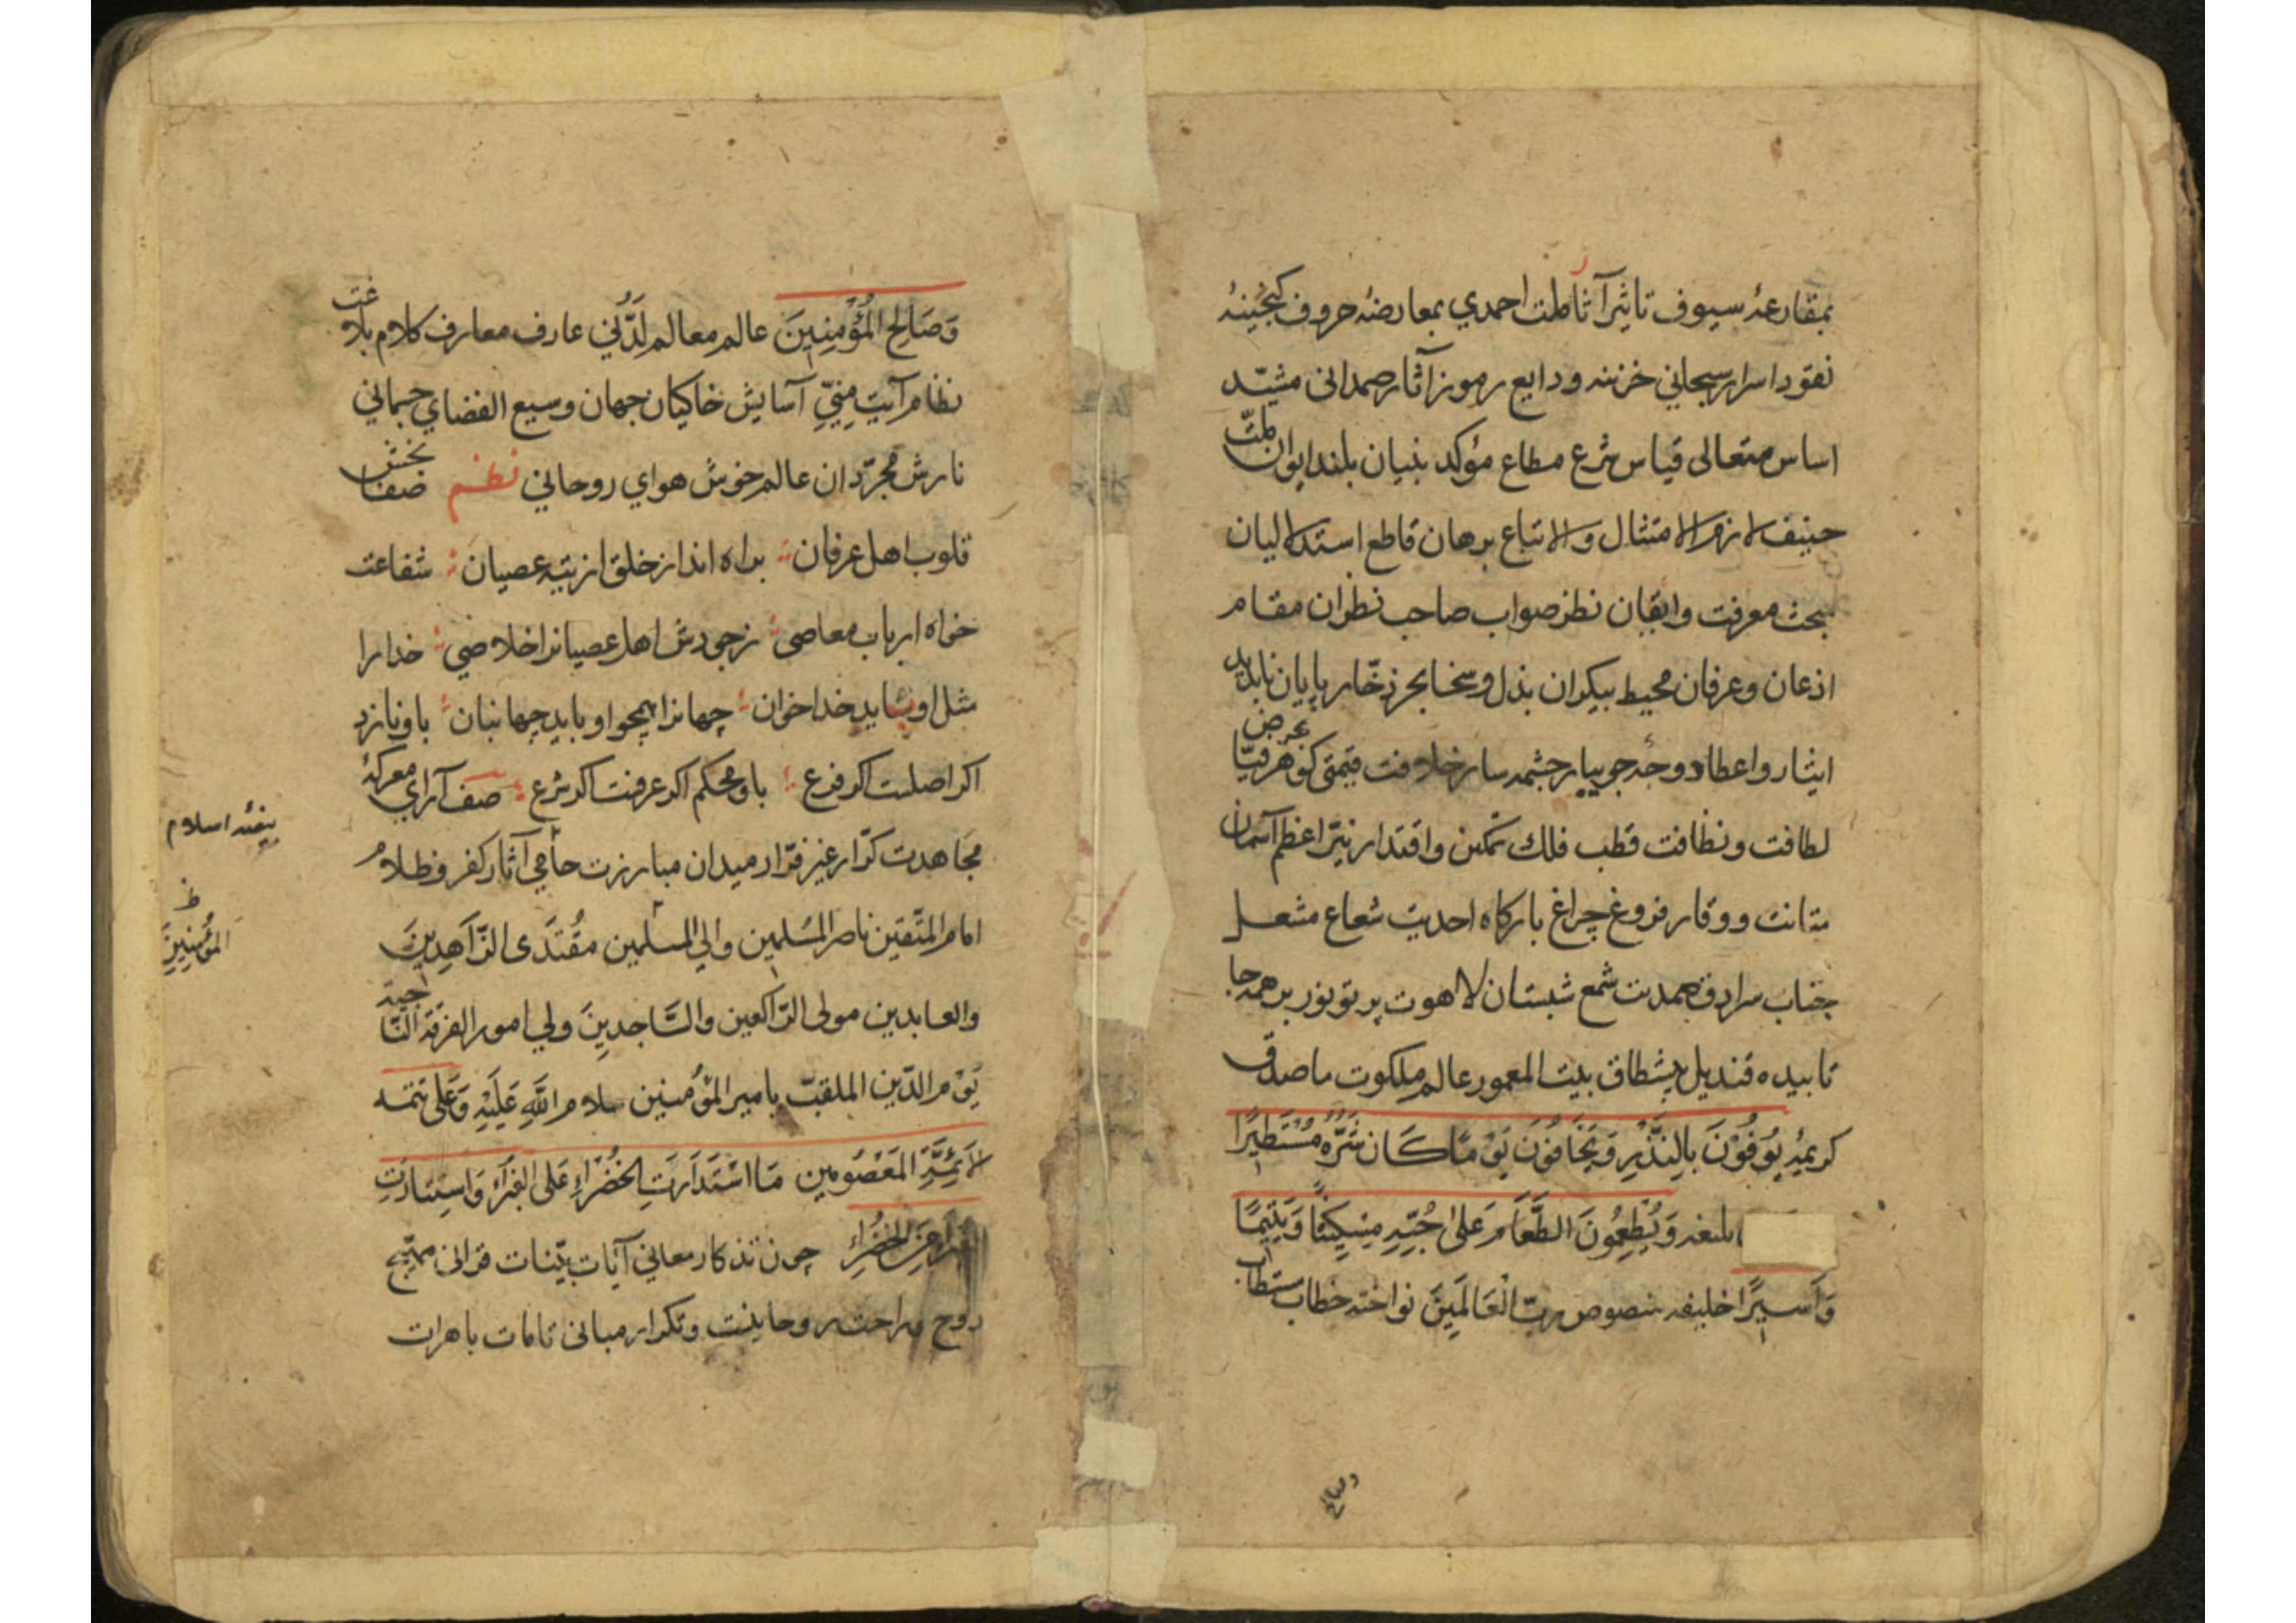 بمقارعهٔ سیوف تاثیر آثار ملت احمدي بمعارضهٔ حروف کنجینهٔ
نقود اسرار سبحاني خزینه ودایع رموز آثار صمدانی مشیّد
اساس متعالی قیاس شرع مطاع مؤکد بنیان بلند ایوان ملّت
حنیف لازم الامتثال والاتباع برهان قاطع استدلالیان
مبحث معرفت وایقان نظر صواب صاحب نظران مقام
اذعان وعرفان محیط بیکران بذل وسخا بحر زخّار پایان ناپدید
ایثار واعطا دوحهٔ جویبار چشمه سار خلافت قیمتی کوهر فیّاض
لطافت ونظافت قطب فلك تمکین واقتدار نیّر اعظم آسمان
متانت ووقار فروغ چراغ بارکاه احدیت شعاع مشعل
جناب سرادق صمدیت شمع شبستان لاهوت پرتو نور بر همه جا
تابیده قندیل پیشطاق بیت المعمور عالم ملکوت ماصدق
کریمهٔ یُوفُوْنَ بِالنَّذْرِ وَیَخَافُوْنَ یَوْمًا کَانَ شَرُّهُ مُسْتَطِیْرًا
وَیُطْعِمُونَ الطَّعَامَ عَلیٰ حُبِّهِ مِسْکِیْنًا وَیَتِیْمًا
وَأَسِیْرًا خلیفه منصوص ربّ الْعَالَمِینَ نواخته خطاب مستطاب
وَصَالِحِ الْمُؤْمِنِینَ عالم معالم لَدُنّی عارف معارف کلام بلاغت
نظام آیت مِنّیِ آسایش خاکیان جهان وسیع الفضاي جسماني
نازش مجرّدان عالم خوش هواي روحاني نظم صفا بخش
قلوب اهل عرفان براه انداز خلق از تیه عصیان شفاعت
خواه ارباب معاصی زجودش اهل عصیانرا خلاصي خدا را
مثل او شاید خداخوان جهانرا همچو او باید جهانبان باو نازد
اکر اصلست اکر فرع باو محکم اکر عرفست اکر شرع صف آراي معرکهٔ
مجاهدت کرّار غیر فرّار میدان مبارزت ماحي آثار کفر وظلام
امام المتّقین ناصر المسلمین والي المسلمین مقْتَدَی الزّاهِدِینَ
والعابدین مولی الرّاکعین والسّاجدِینَ ولي امور الفرقة النّاجیة
یَوْمِ الدّین الملقّب بامیر المؤمنین سلام اللهِ عَلَیْهِ وَعَلی تتمه
الأَئِمَّةِ المَعْصُومین مَا اسْتَدَارَتِ الخَضْرَاءِ عَلی الغَبْرَاءِ وَاستنارَتِ
الغبراء عَنِ الخضْرَاءِ چون تذکار معاني آیات بیّنات قرانی مهیّج
روح وراحت روحانیست وتکرار مبانی تامات باهرات
بیضهٔ اسلام
ظ
المؤمِنِینَ